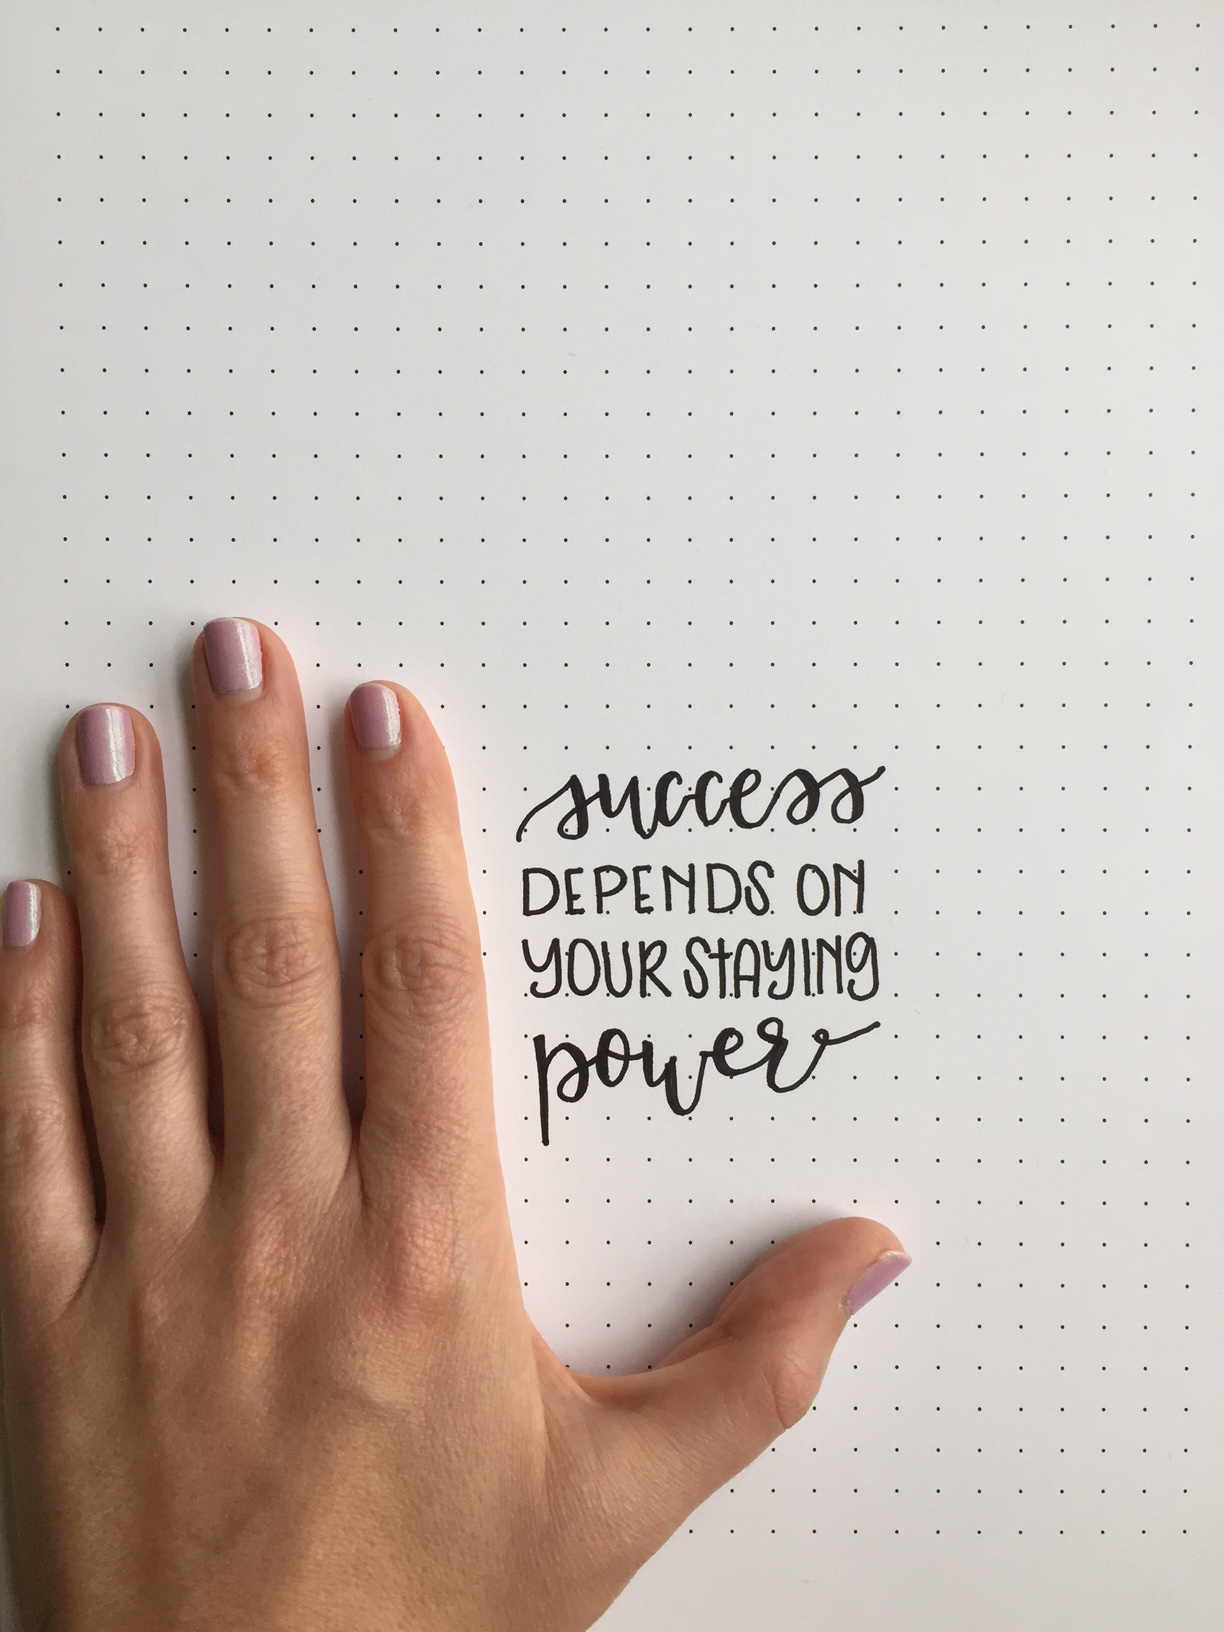 success
DEPENDS ON
YOUR STAYING
power